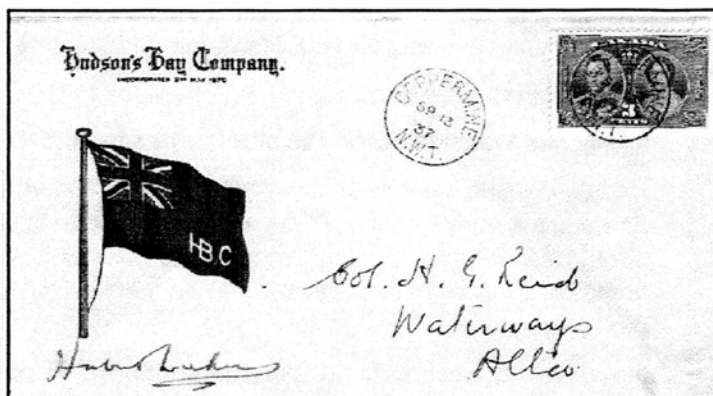 Hudson's Bay Company.
INCORPORATED 2ND MAY 1670
COPPERMINE
SP 13
37
N.W.T.
CANADA
3
HBC
Col. H. G. Reid
Waterways
Alta